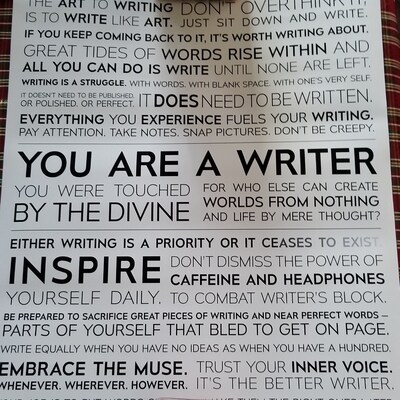 THE ART TO WRITING DON'T OVERTHINK IT.
IS TO WRITE LIKE ART. JUST SIT DOWN AND WRITE.
IF YOU KEEP COMING BACK TO IT, IT'S WORTH WRITING ABOUT.
GREAT TIDES OF WORDS RISE WITHIN AND
ALL YOU CAN DO IS WRITE UNTIL NONE ARE LEFT.
WRITING IS A STRUGGLE. WITH WORDS. WITH BLANK SPACE. WITH ONE'S VERY SELF.
IT DOESN'T NEED TO BE PUBLISHED,
OR POLISHED, OR PERFECT. IT DOES NEED TO BE WRITTEN.
EVERYTHING YOU EXPERIENCE FUELS YOUR WRITING.
PAY ATTENTION. TAKE NOTES. SNAP PICTURES. DON'T BE CREEPY.
YOU ARE A WRITER
YOU WERE TOUCHED
BY THE DIVINE
FOR WHO ELSE CAN CREATE
WORLDS FROM NOTHING
AND LIFE BY MERE THOUGHT?
EITHER WRITING IS A PRIORITY OR IT CEASES TO EXIST.
INSPIRE
YOURSELF DAILY.
DON'T DISMISS THE POWER OF
CAFFEINE AND HEADPHONES
TO COMBAT WRITER'S BLOCK.
BE PREPARED TO SACRIFICE GREAT PIECES OF WRITING AND NEAR PERFECT WORDS —
PARTS OF YOURSELF THAT BLED TO GET ON PAGE.
WRITE EQUALLY WHEN YOU HAVE NO IDEAS AS WHEN YOU HAVE A HUNDRED.
EMBRACE THE MUSE. TRUST YOUR INNER VOICE.
WHENEVER. WHEREVER. HOWEVER. IT'S THE BETTER WRITER.